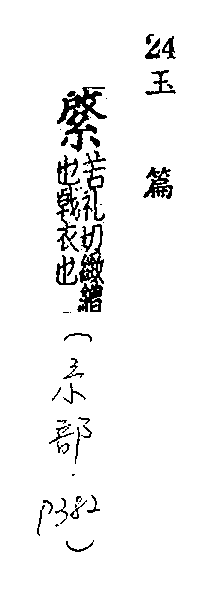 24 玉篇
綮 苦礼切緻繒
也戟衣也
(糸部.
P382)